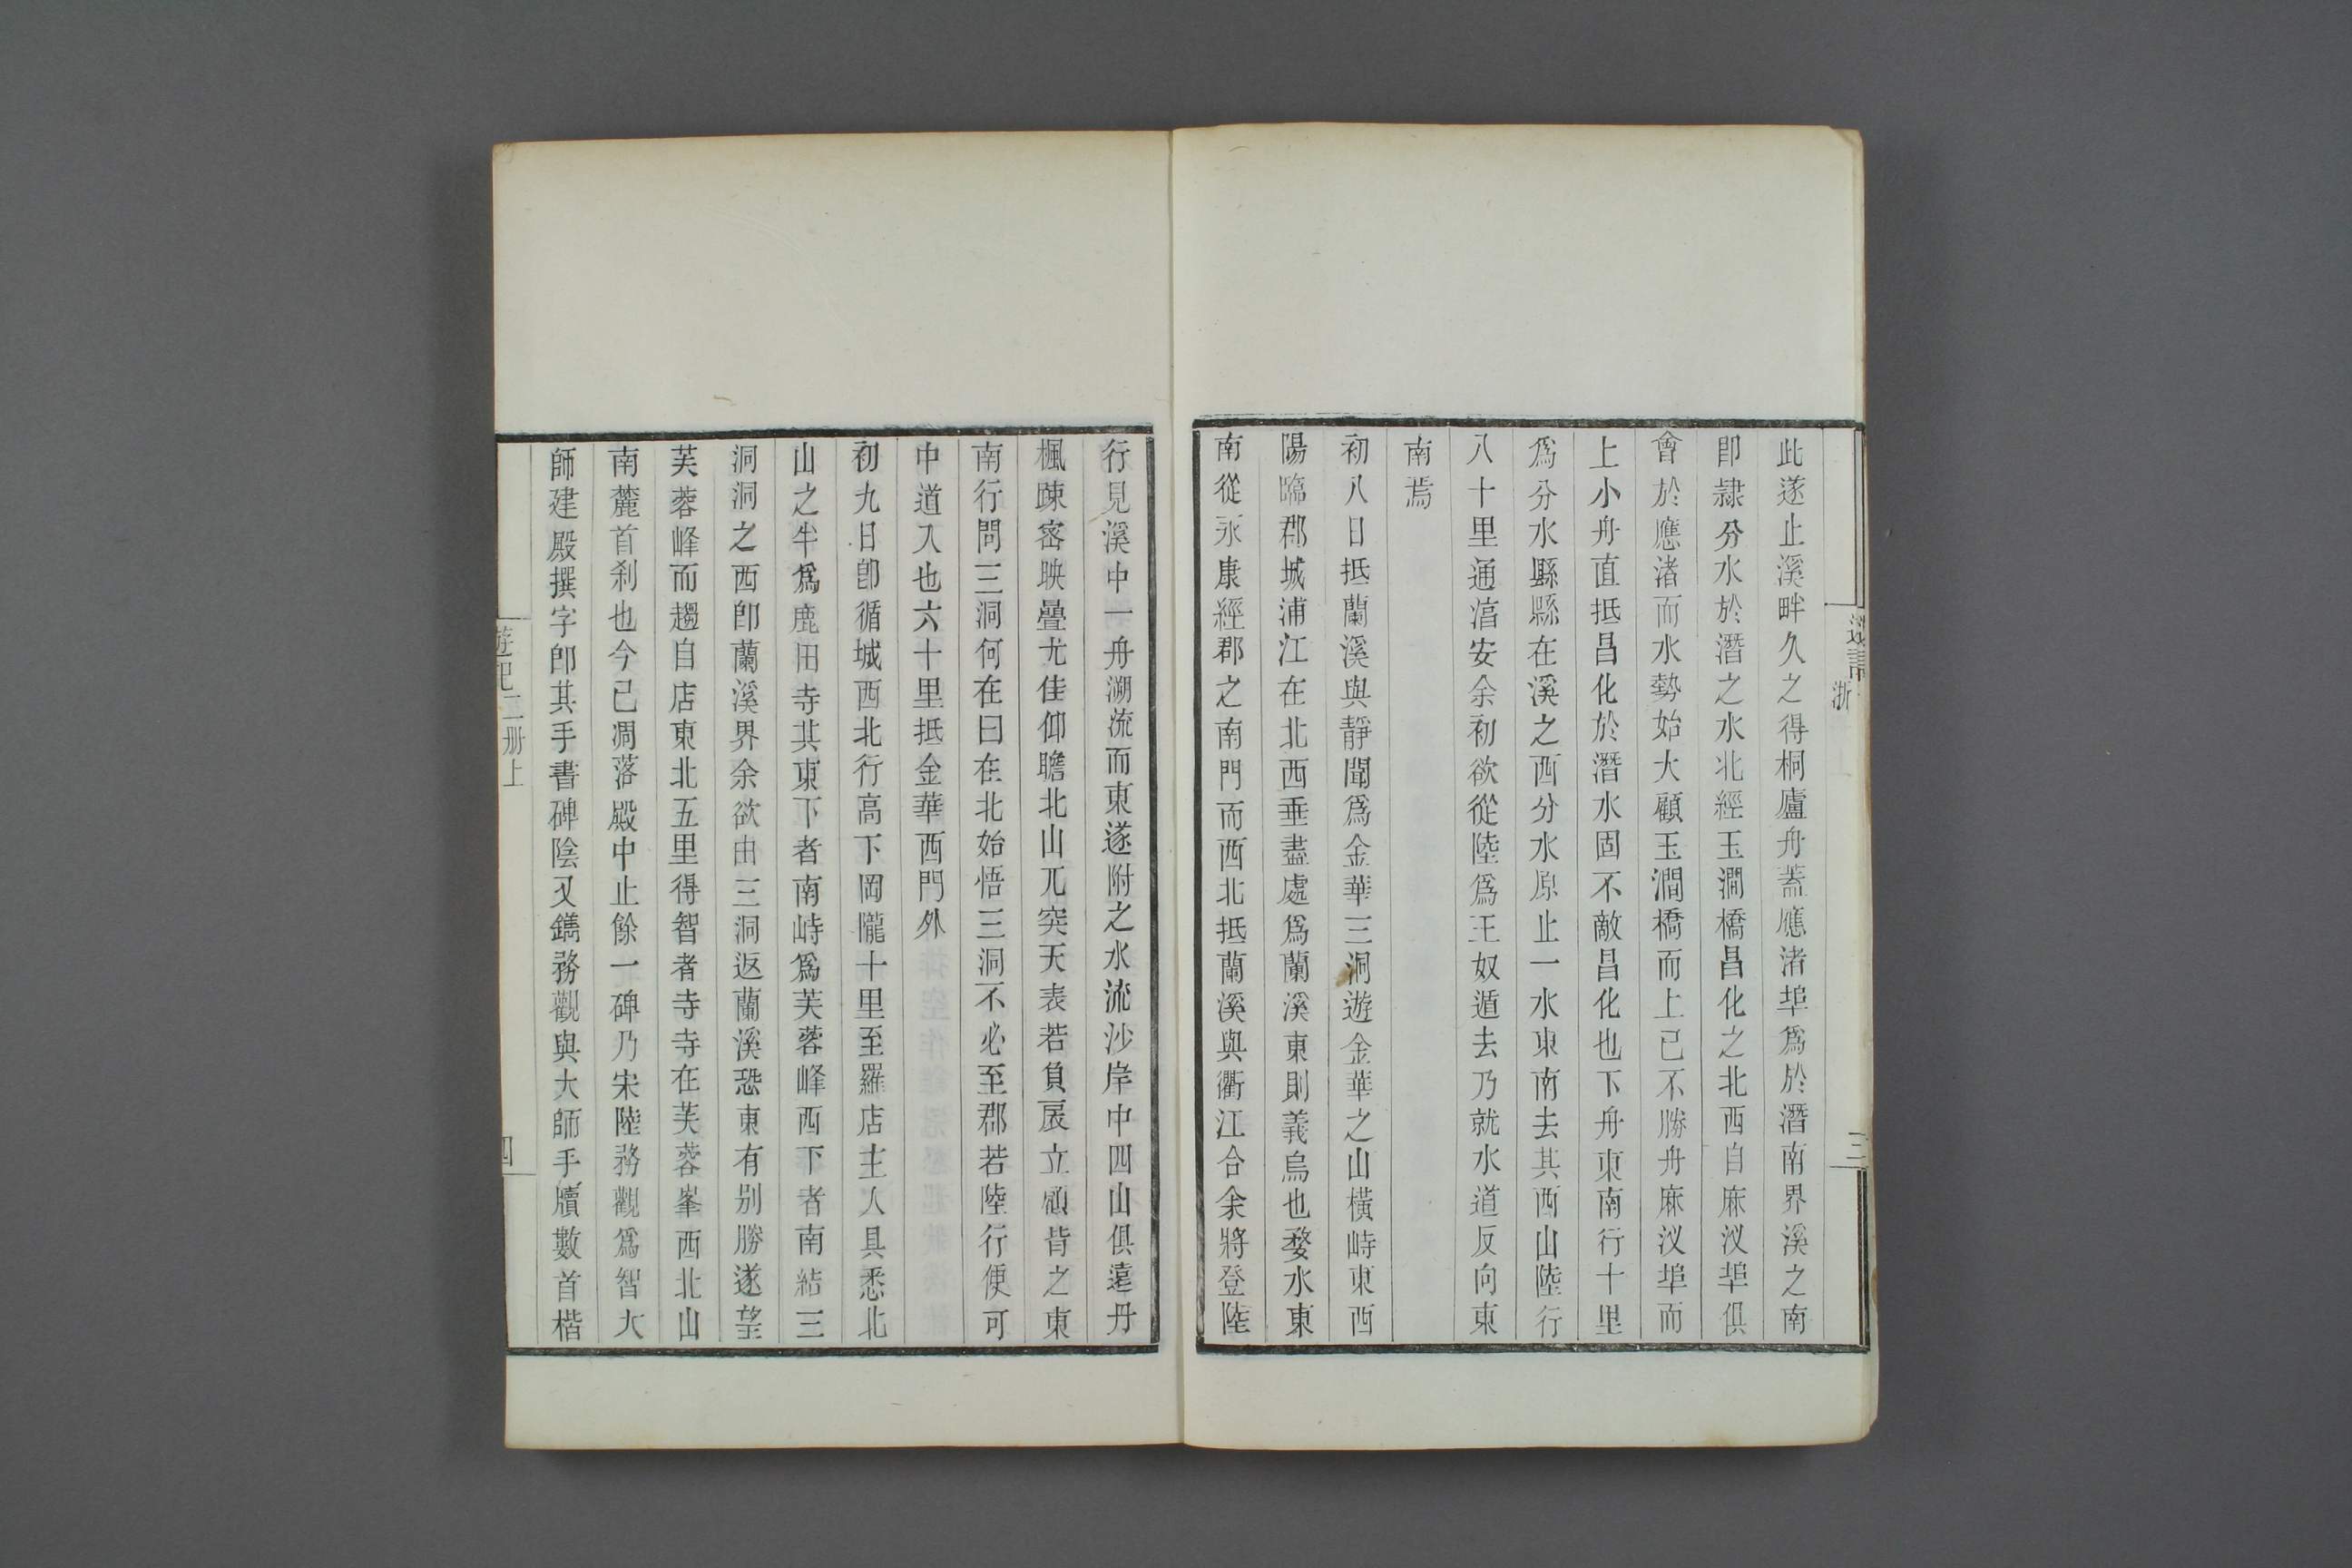 此遂止溪畔久之得桐廬舟蓋應渚埠爲於潛南界溪之南
卽隷分水於潛之水北經玉澗橋昌化之北西自麻汊埠俱
會於應渚而水勢始大顧玉澗橋而上已不勝舟麻汊埠而
上小舟直抵昌化於潛水固不敵昌化也下舟東南行十里
爲分水縣縣在溪之西分水原止一水東南去其西山陸行
八十里通淳安余初欲從陸爲王奴遁去乃就水道反向東
南焉
初八日抵蘭溪與靜聞爲金華三洞遊金華之山橫峙東西
陽臨郡城浦江在北西垂盡處爲蘭溪東則義烏也婺水東
南從永康經郡之南門而西北抵蘭溪與衢江合余將登陸
行見溪中一舟溯流而東遂附之水流沙岸中四山俱遠丹
楓踈密映疊尤佳仰瞻北山兀突天表若負扆立顧皆之東
南行問三洞何在曰在北始悟三洞不必至郡若陸行便可
中道入也六十里抵金華西門外
初九日卽循城西北行高下岡隴十里至羅店主人具悉北
山之半爲鹿田寺其東下者南峙爲芙蓉峰西下者南結三
洞洞之西卽蘭溪界余欲由三洞返蘭溪恐東有別勝遂望
芙蓉峰而趨自店東北五里得智者寺寺在芙蓉峯西北山
南麓首刹也今已凋落殿中止餘一碑乃宋陸務觀爲智大
師建殿撰字卽其手書碑陰又鐫務觀與大師手牘數首楷
遊記二册上
四
浙
三